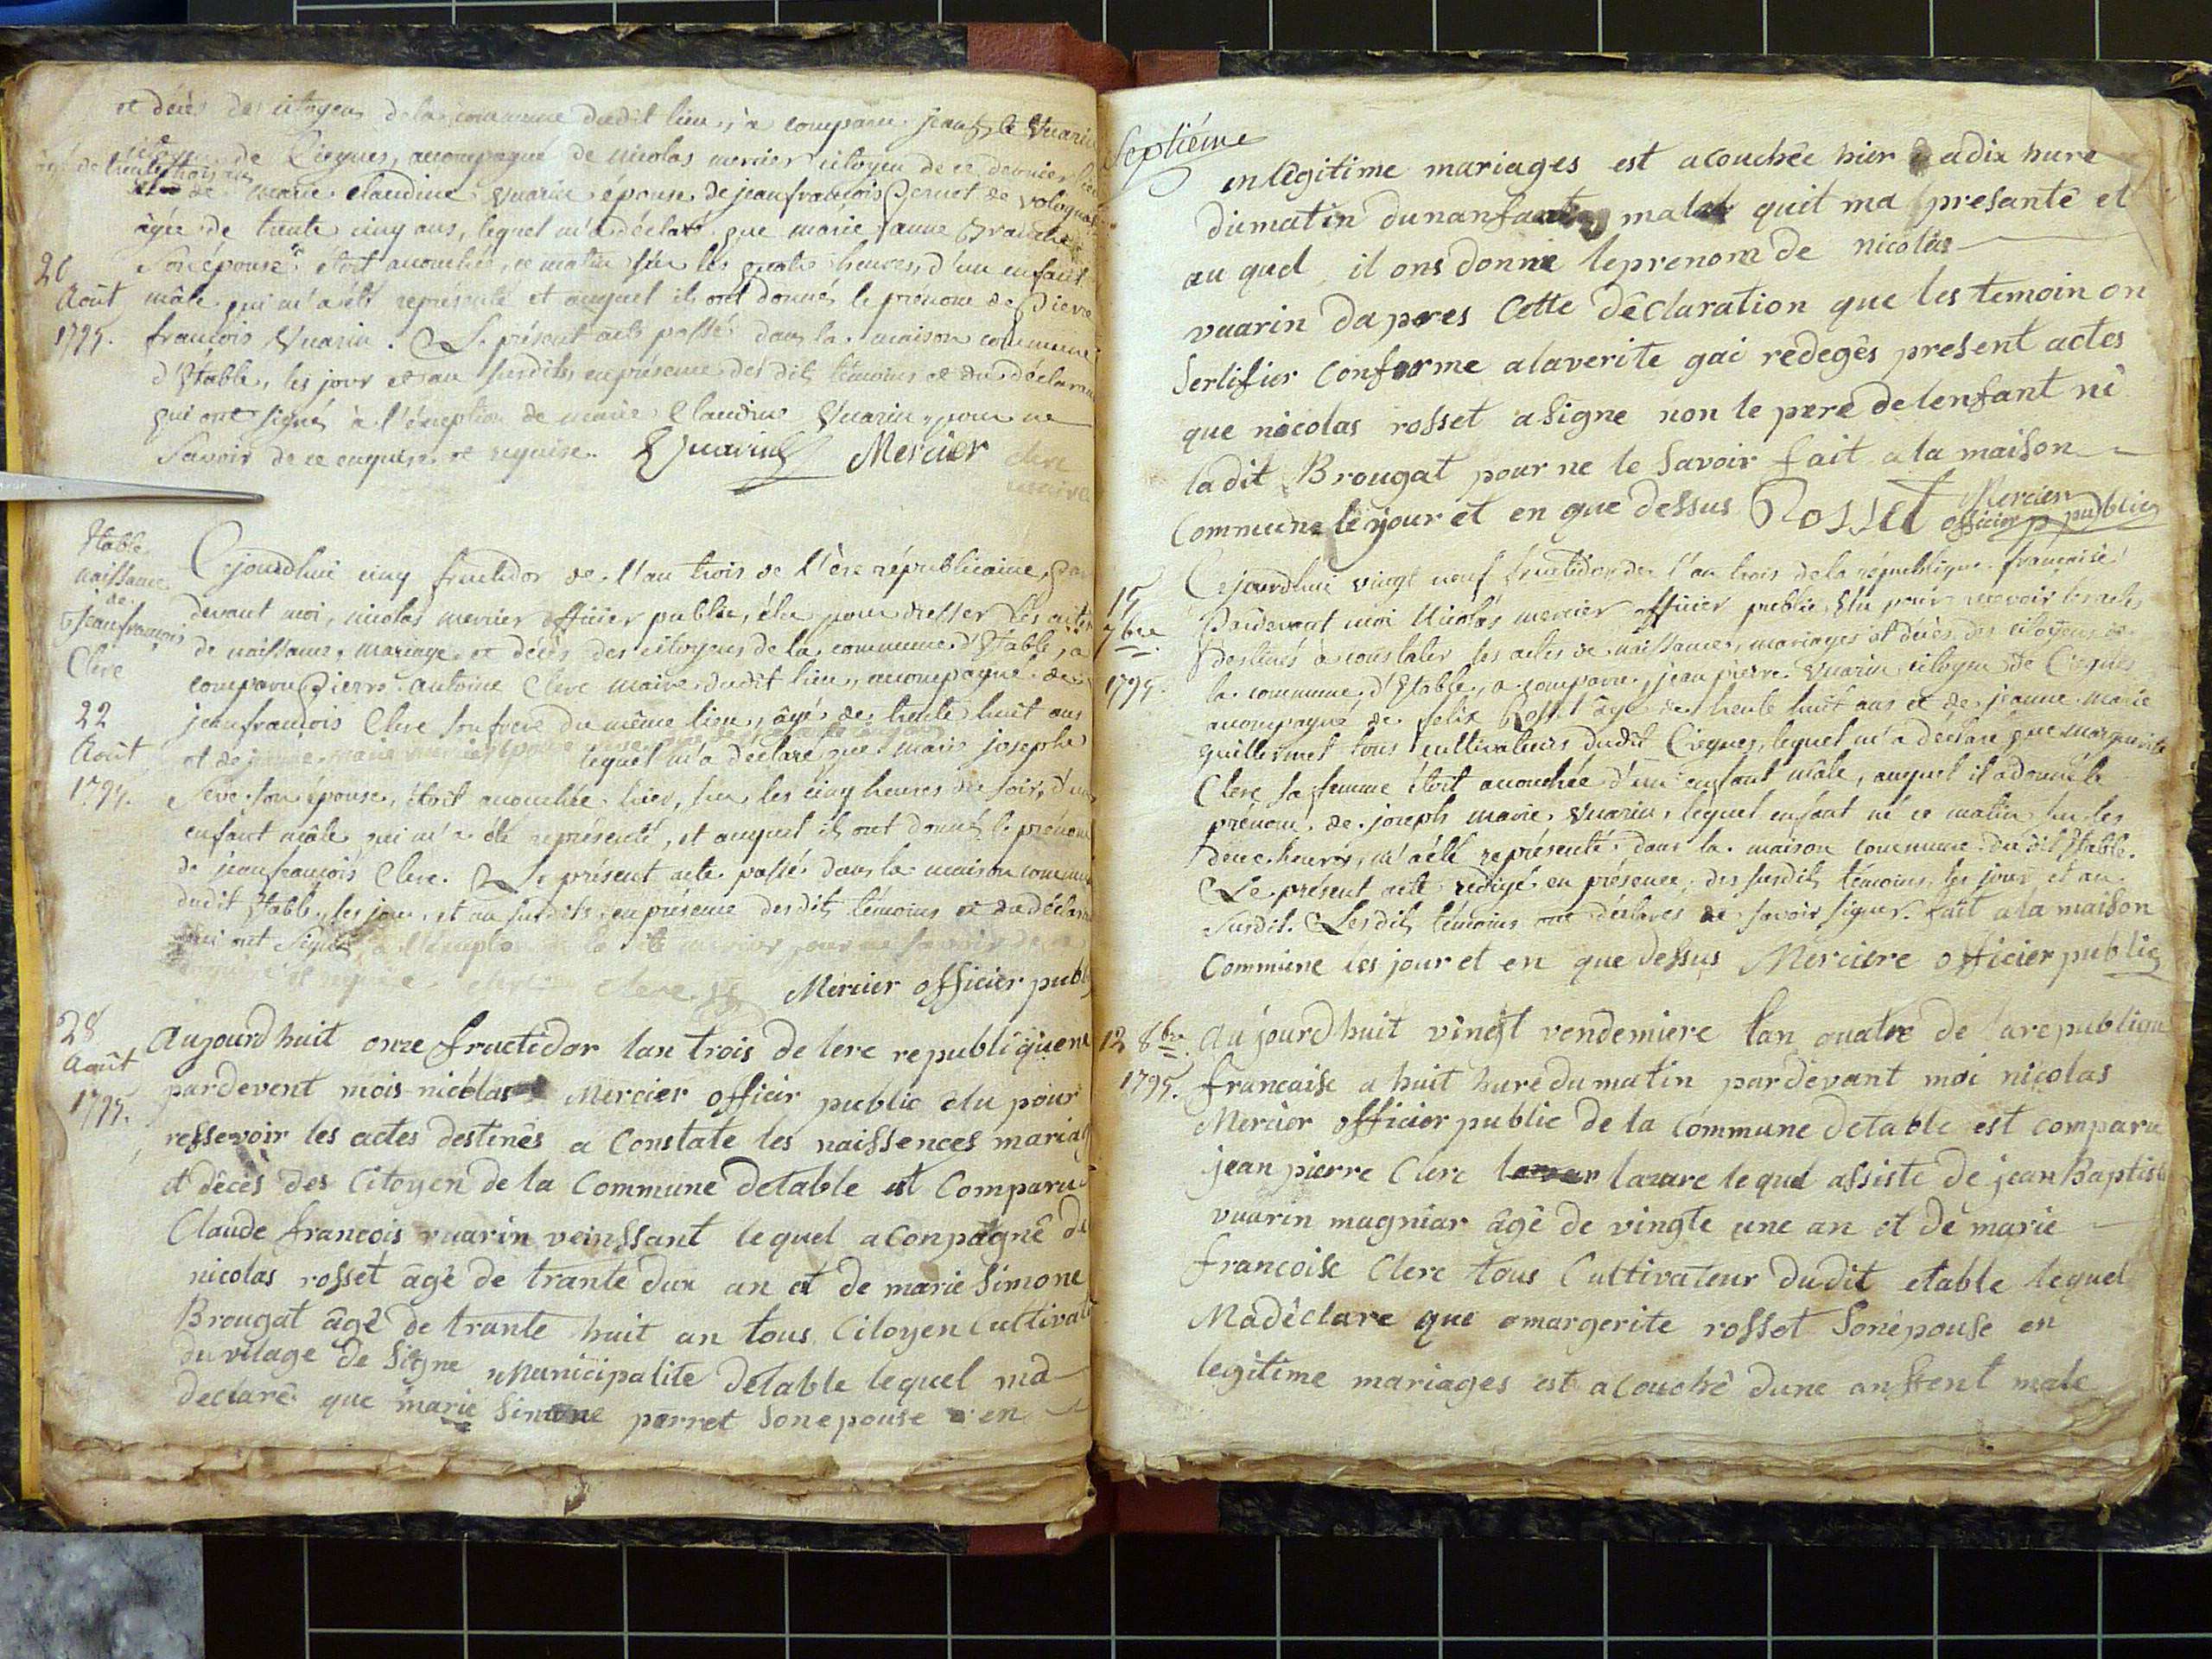 et décès des citoyens de la commune dudit lieu, a comparu jean le Vuarin
citoyen de Cieynes, accompagné de nicolas mercier citoyen de ce dernier lieu
âgé de trente trois ans
et de marie claudine Vuarin épouse de jeanfrançois Pernet de vologna
âgée de trente cinq ans, lequel m'a déclaré que marie anne
Son épouse étoit accouchée, ce matin sur les quatre heures, d'un enfant
20
Août
1795.
mâle qui m'a été représenté et auquel ils ont donné le prénom de Pierre
françois Vuarin. Le présent acte passé dans la maison commune
d'Étable, les jour et an susdits, en présence des dits témoins et du déclarant
qui ont signés à l'éxception de marie Claudine Vuarin, pour ne
Savoir de ce enquise et requise. Vuarin Mercier clerc
maire
Étable
naissance
de
jeanfrançois
Clerc
22
Août
1795.
Cejourdhui cinq fructidor de l'an trois de l'ère républicaine, par
devant moi, nicolas mercier officier public, élu pour dresser les actes
de naissance, mariage et décès des citoyens de la commune d'Étable, a
comparu Pierre antoine Clerc maire dudit lieu, accompagné de
jeanfrançois Clerc son frere du même lieu, âgé de trente huit ans
et de jeanne marie mercier lequel m'a déclaré que marie josephe
Seve son épouse, étoit accouchée hier, sur les cinq heures du soir, d'un
enfant mâle qui m'a été représenté, et auquel ils ont donné le prénom
de jeanfrançois Clerc. Le présent acte passé dans la maison commune
dudit Étable, les jour et an susdits, en présence desdits témoins et du déclarant
qui ont signés à l'éxception de la dite mercier pour ne savoir de ce
enquise et requise. clerc clerc Mercier officier publ
28
Août
1795.
Aujourdhuit onze fructidor lan trois de lere republiquene
pardevent mois nicolas Mercier officir public élu pour
ressevoir les actes destinês a Constate les naissences mariag
et dêcès des Citoyen de la Commune detable est Comparu
Claude francois vuarin veinssant lequel aConpagnê de
nicolas rosset âgê de trante dux an et de marie Simone
Brougat âgê de trante huit an tous Citoyen Cultivat
du vilage de Signe Municipalite detable lequel ma
declarê que marie Simone perret Sonepouse en
Septiéme
en lêgitime mariages est acouchêe hier a dix hure
dumatin dunanfant malat quit ma presantê et
au quel il ons donne leprenom de nicolas
vuarin dapres Cette dêclaration que les temoin on
Sertifier Conforme alaverite gai redegês present actes
que nicolas rosset aSigne non le pere delenfant ni
ladit Brougat pour ne le Savoir fait a la maison
Commune le jour et en que dessus Rosset Mercier
officier public
15
7bre
1795.
Cejourdhui vingt neuf fructidor de l'an trois de la république française
Pardevant moi Nicolas mercier officier public élu pour recevoir les actes
destinés à constater les actes de naissance, mariages et décès des citoyens de
la commune d'Étable, a comparu, jean pierre Vuarin citoyen de Cieynes
accompagné de felix Rosset âgé de trente huit ans et de jeanne marie
guillermet tous cultivateurs dudit Cieynes, lequel m'a déclaré que marguerite
Clerc sa femme étoit accouchée d'un enfant mâle, auquel il a donné le
prénom de joseph marie Vuarin, lequel enfant né ce matin sur les
deux heures, m'a été représenté dans la maison commune dudit Étable.
Le présent acte redigé en présence des susdits témoins les jour et an
susdit. Lesdits témoins ont déclarés ne savoir signer. fait a la maison
Commune les jour et en que dessus Merciere officier public
12 8bre
1795.
Aujourdhuit vingt vendemiere lan quatre de larepublique
francaise a huit hure dumatin pardevant moi nicolas
Mercier officier public de la Commune detable est comparu
jean pierre Clerc lazare lequel assiste de jean Baptiste
vuarin magniar âgê de vingte une an et de marie
francoise Clerc tous Cultivateur dudit etable lequel
Madêclare que margerite rosset Sonépouse en
legitime mariages est acouchê dune anffent male